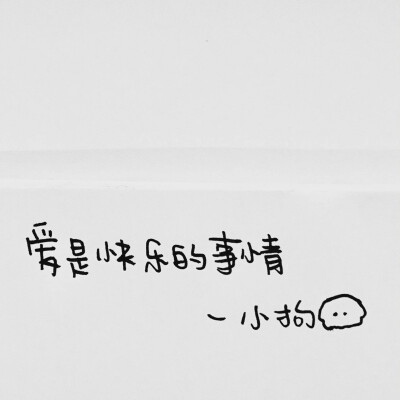 爱是快乐的事情
-小拘